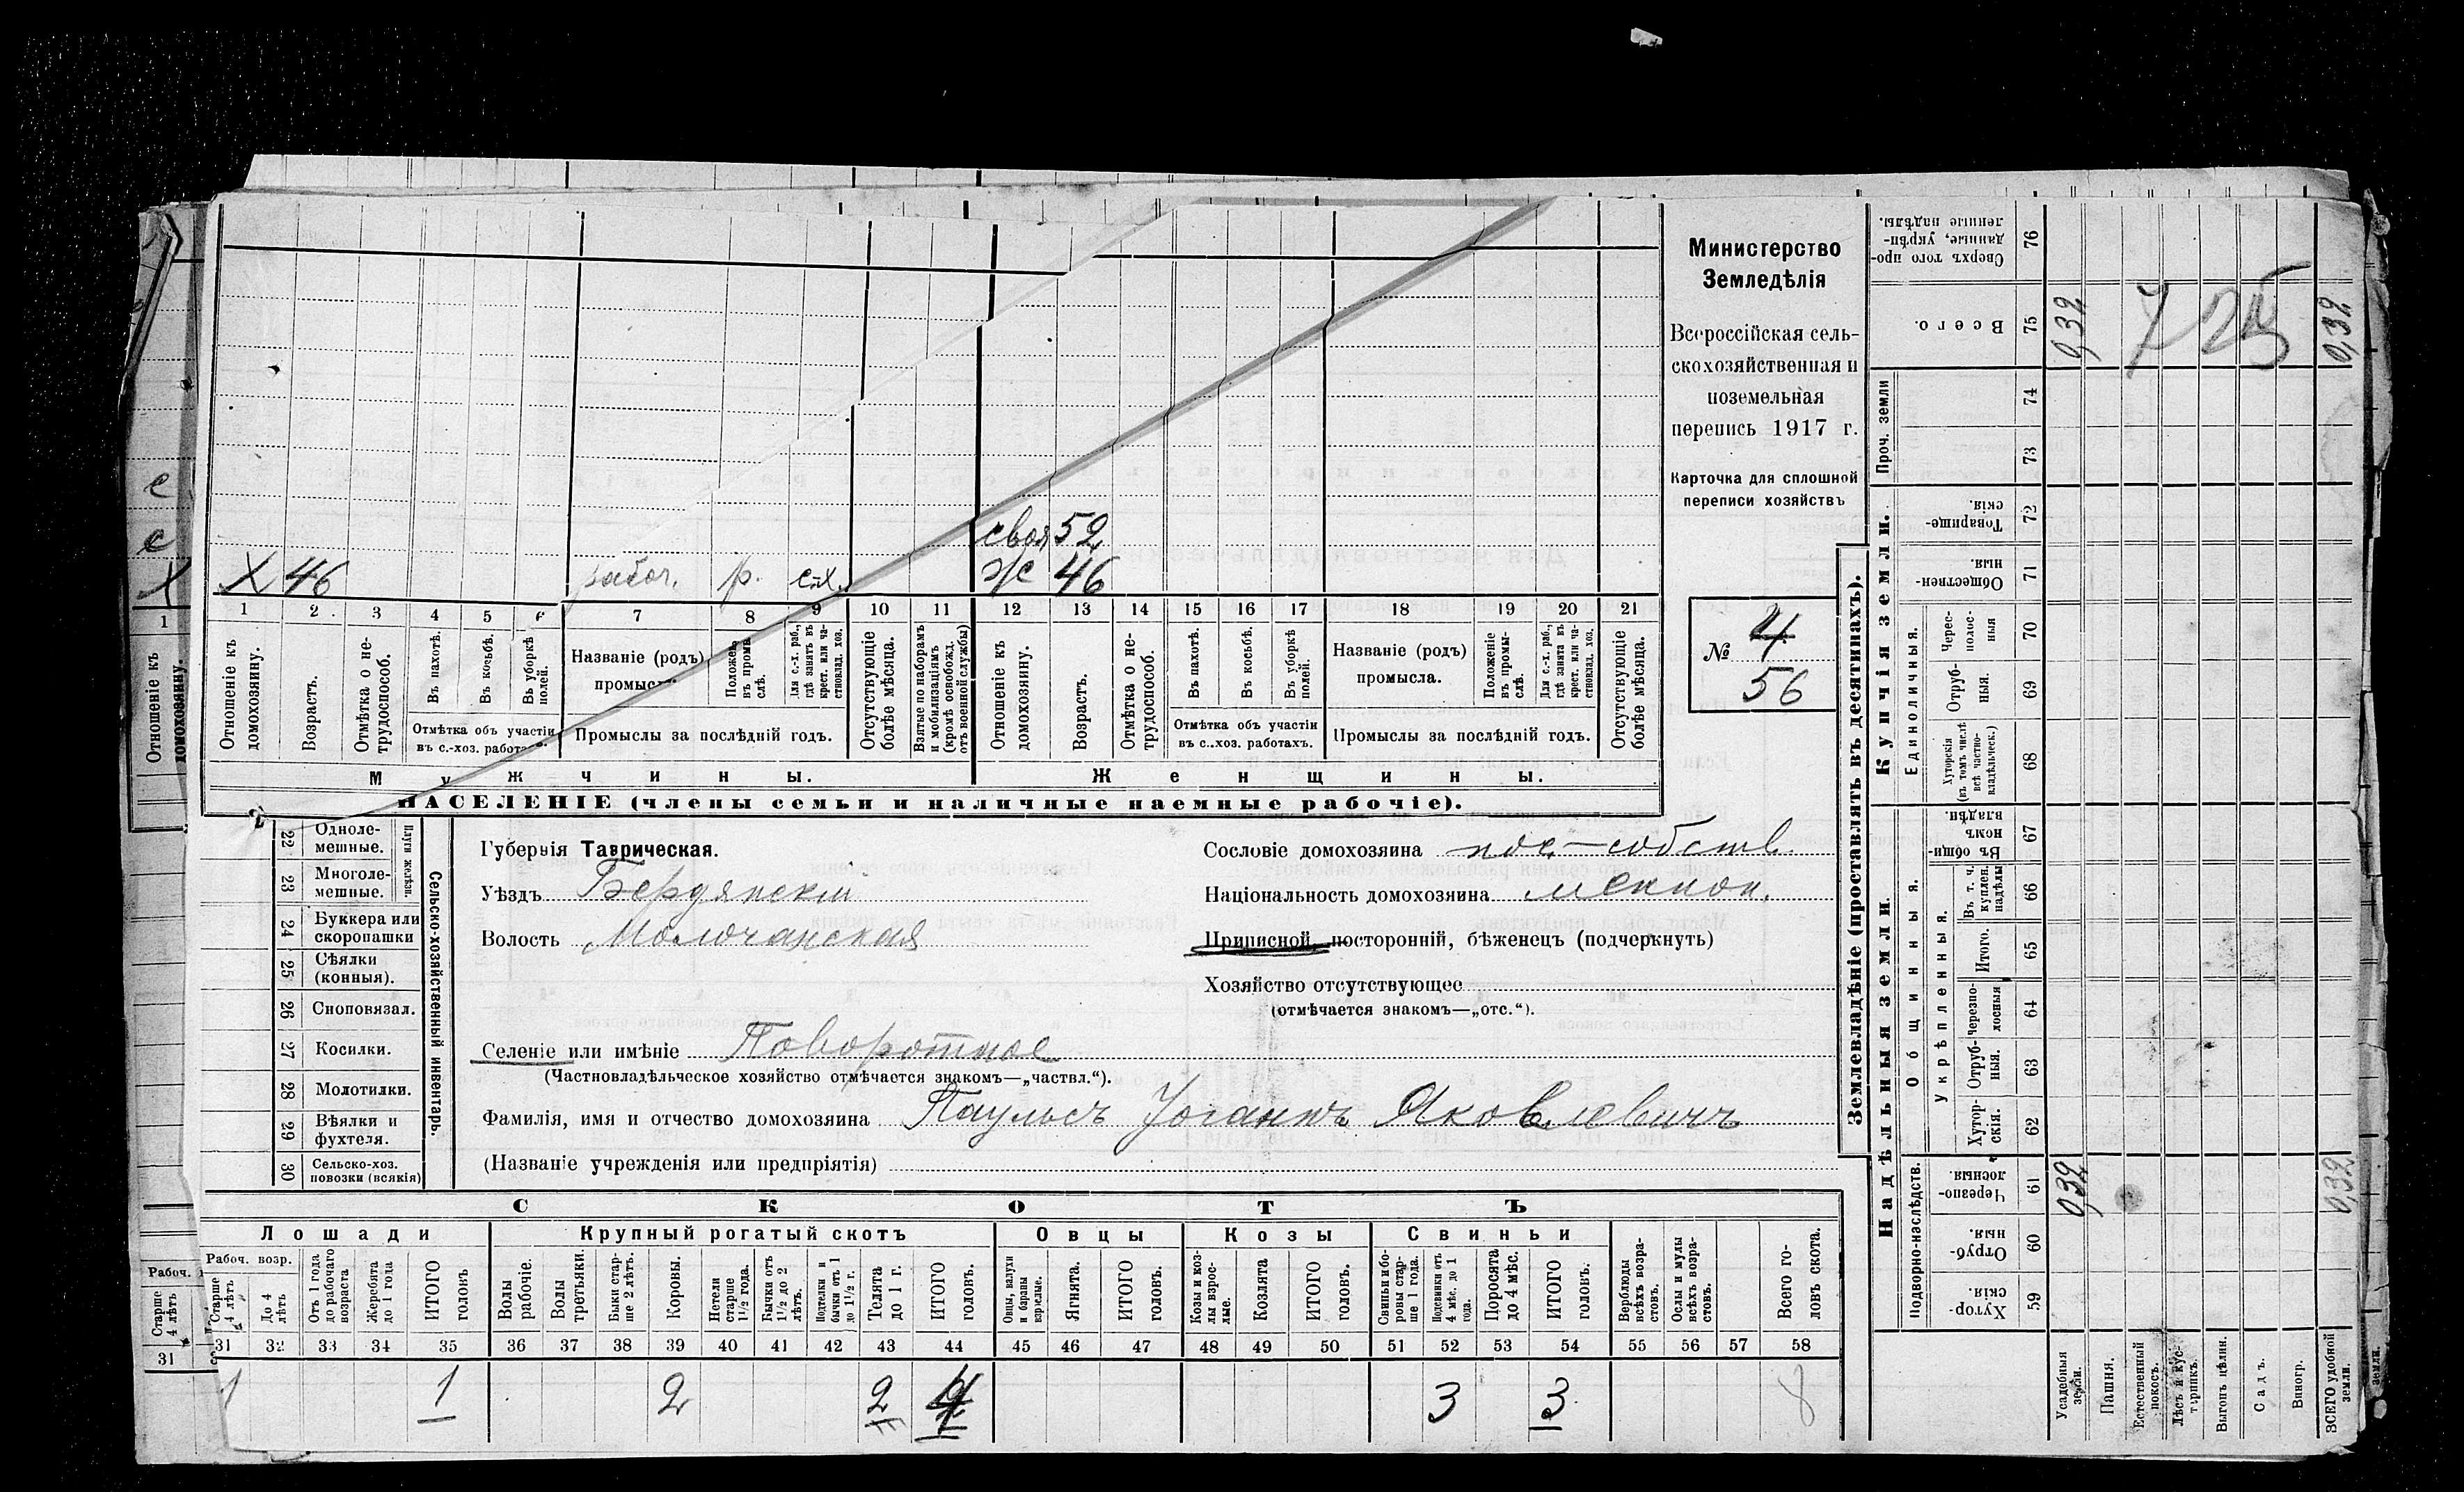 Министерство
Земледѣлія
Всероссійская сель-
скохозяйственная и
поземельная
перепись 1917 г.
Карточка для сплошной
переписи хозяйствъ
№ 4
56
своя 52
Х 46 рабоч. р. с.х. Ж 46
1 2 3 4 5 6 7 8 9 10 11 12 13 14 15 16 17 18 19 20 21
Отношеніе къ домохозяину.
Возрастъ.
Отмѣтка о не-трудоспособ.
Въ пахотѣ.
Въ косьбѣ.
Въ уборкѣ полей.
Отмѣтка объ участіи
въ с.-хоз. работахъ.
Названіе (родъ)
промысла.
Положеніе въ промыслѣ.
Для с.-х. раб., гдѣ занятъ въ крест. или частновлад. хоз.
Промыслы за послѣдній годъ.
Отсутствующіе болѣе мѣсяца.
Взятые по наборамъ и мобилизаціямъ (кромѣ освобожд. отъ военной службы)
Отношеніе къ домохозяину.
Возрастъ.
Отмѣтка о не-трудоспособ.
Въ пахотѣ.
Въ косьбѣ.
Въ уборкѣ полей.
Отмѣтка объ участіи
въ с.-хоз. работахъ.
Названіе (родъ)
промысла.
Положеніе въ промыслѣ.
Для с.-х. раб., гдѣ занята въ крест. или частновлад. хоз.
Промыслы за послѣдній годъ.
Отсутствующіе болѣе мѣсяца.
Мужчины. Женщины.
НАСЕЛЕНІЕ (члены семьи и наличные наемные рабочіе).
22 Одноле-мешные.
23 Многоле-мешные.
Плуги желѣзн.
24 Буккера или скоропашки
25 Сѣялки (конныя).
26 Сноповязал.
27 Косилки.
28 Молотилки.
29 Вѣялки и фухтеля.
30 Сельско-хоз. повозки (всякія)
Сельско-хозяйственный инвентарь.
Губернія Таврическая.
Уѣздъ Бердянскій
Волость Молочанская
Сословіе домохозяина пос.-собств.
Національность домохозяина меннон.
Приписной, посторонній, бѣженецъ (подчеркнуть)
Хозяйство отсутствующее
(отмѣчается знакомъ—„отс.“).
Селеніе или имѣніе Поворотное
(Частновладѣльческое хозяйство отмѣчается знакомъ—„частвл.“).
Фамилія, имя и отчество домохозяина Паульсъ Іоганъ Яковлевичъ
(Названіе учрежденія или предпріятія)
СКОТЪ
Лошади Крупный рогатый скотъ Овцы Козы Свиньи
Рабоч. возр.
Старше 4 лѣтъ
До 4 лѣтъ
Отъ 1 года до рабочаго возраста
Жеребята до 1 года
ИТОГО головъ
Волы рабочіе.
Волы третьяки.
Быки стар-ше 2 лѣтъ.
Коровы.
Нетели старше 1½ года.
Бычки отъ 1½ до 2 лѣтъ.
Подтелки и бычки отъ 1 до 1½ г.
Телята до 1 г.
ИТОГО головъ.
Овцы, валухи и бараны взрослые.
Ягнята.
ИТОГО головъ.
Козы и коз-лы взрос-лые.
Козлята
ИТОГО головъ.
Свиньи и бо-ровы стар-ше 1 года.
Подсвинки отъ 4 мѣс. до 1 года.
Поросята до 4 мѣс.
ИТОГО головъ.
Верблюды всѣхъ возра-стовъ.
Ослы и мулы всѣхъ возра-стовъ.
Всего го-ловъ скота.
31 32 33 34 35 36 37 38 39 40 41 42 43 44 45 46 47 48 49 50 51 52 53 54 55 56 57 58
1 1 2 2 4 3 3 8
Землевладѣніе (проставлять въ десятинахъ).
Купчія земли.
Надѣльныя земли.
Проч. земли
Единоличныя.
Общинныя.
Укрѣпленныя.
Подворно-наслѣдств.
Сверхъ того про-данные, укрѣп-ленные надѣлы. 76
Всего. 75
74
73
Товарище-скія. 72
Обществен-ныя. 71
Черес-полос-ныя 70
Отруб-ныя. 69
Хуторскія (въ томъ числѣ всѣ частно-владѣльческ.) 68
Въ общи-номъ владѣн. 67
Въ т. ч. куплен. надѣлы 66
Итого. 65
Черезпо-лосныя 64
Отруб-ныя. 63
Хутор-скія. 62
Черезпо-лосныя. 61
Отруб-ныя. 60
Хутор-скія. 59
Усадебныя земли.
Пашня.
Естественный покосъ.
Лѣсъ и кус-тарникъ.
Выгонъ цѣлин.
Садъ.
Виногр.
ВСЕГО удобной земли.
0,32 725 0,32
0,32 0,32
с
с
Х
1
Отношеніе къ домохозяину.
Рабоч.
Старше 4 лѣтъ
31
земли.